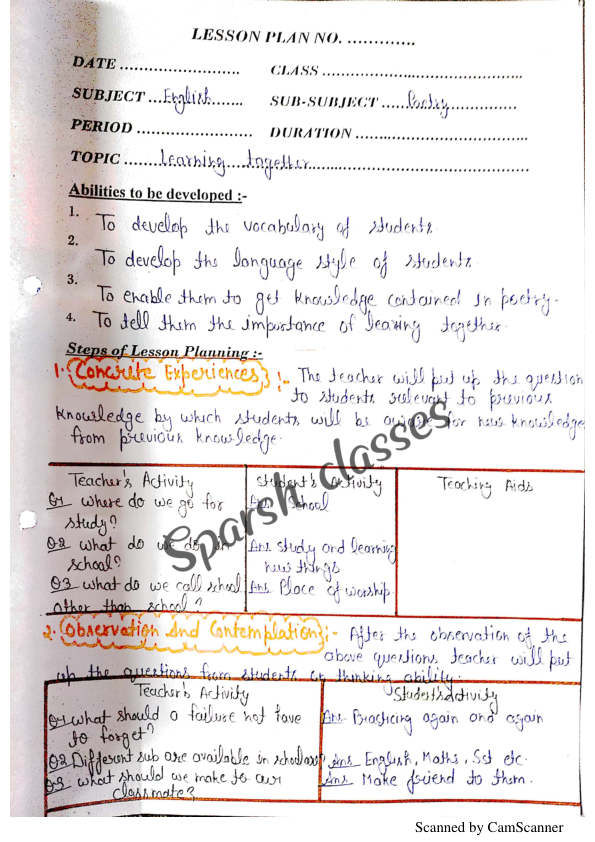 LESSON PLAN NO. .............
DATE ........................ CLASS ........................................
SUBJECT ...English....... SUB-SUBJECT .....Poetry.............
PERIOD ....................... DURATION .................................
TOPIC .......Learning....together...........................................
Abilities to be developed :-
1. To develop the vocabulary of students.
2. To develop the language style of students.
3. To enable them to get knowledge contained in poetry.
4. To tell them the importance of learing together.
Steps of Lesson Planning :-
1. Concrete Experiences :- The teacher will put up the question
to students relevant to previous
knowledge by which students will be for new knowledge
from previous knowledge.
Teacher's Activity Student's activity Teaching Aids
Q1 where do we go for Ans School
study?
Q2 what do we do in Ans study and learning
school? new things
Q3 what do we call school Ans Place of worship
other than school?
2. Observation And Contemplation :- After the observation of the
above questions, teacher will put
up the questions from students on thinking ability.
Teacher's Activity Student's activity
Q1 what should a failure not have Ans Practicing again and again
to forget?
Q2 Different sub are available in school are? Ans English, Maths, Sst etc.
Q3 what should we make to our Ans Make friend to them.
classmate?
Sparsh classes
Scanned by CamScanner